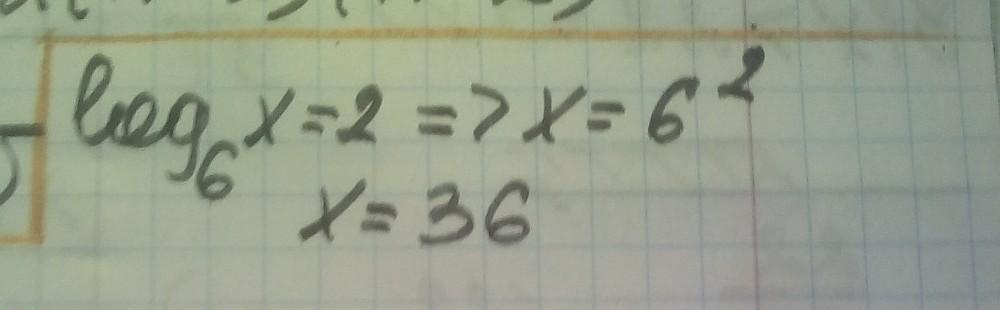 log₆ x = 2 => x = 6²
x = 36